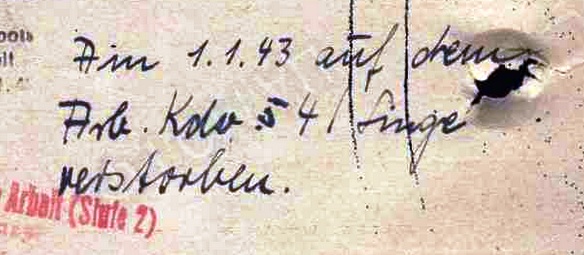 Am 1.1.43 auf dem
Arb. Kdo. 54 / Singe
verstorben.
Arbeit (Stufe 2)